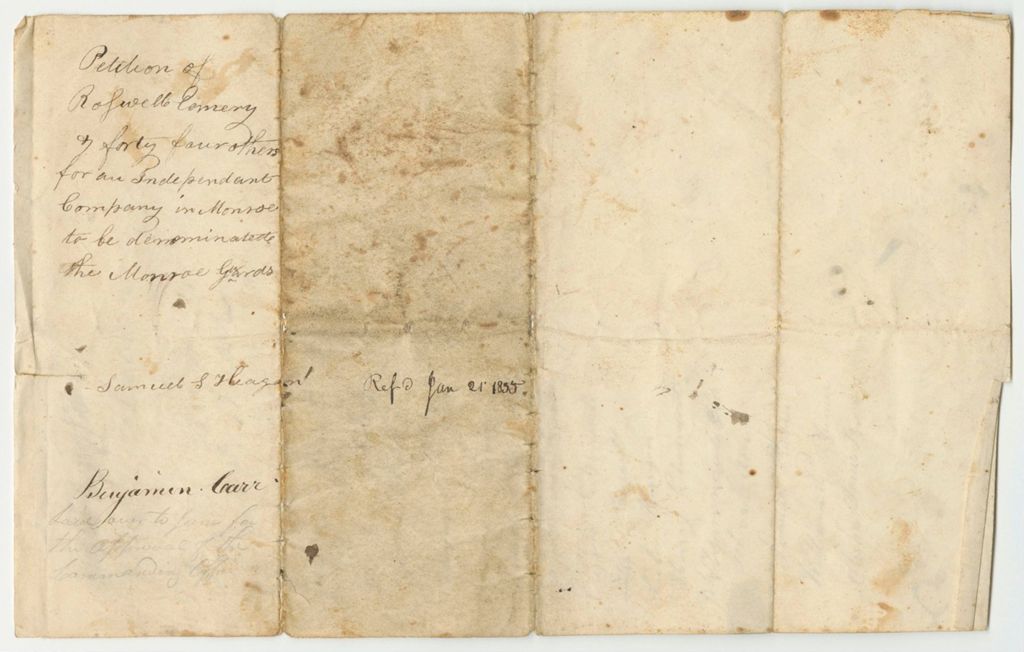 Petition of
Roswell Emery
& forty four others
for an Independant
Company in Monroe
to be denominated
the Monroe Gards
Samuel S Heagan
Refd Jan 21 1835
Benjamin Carr
over to
the approval of the
Commanding